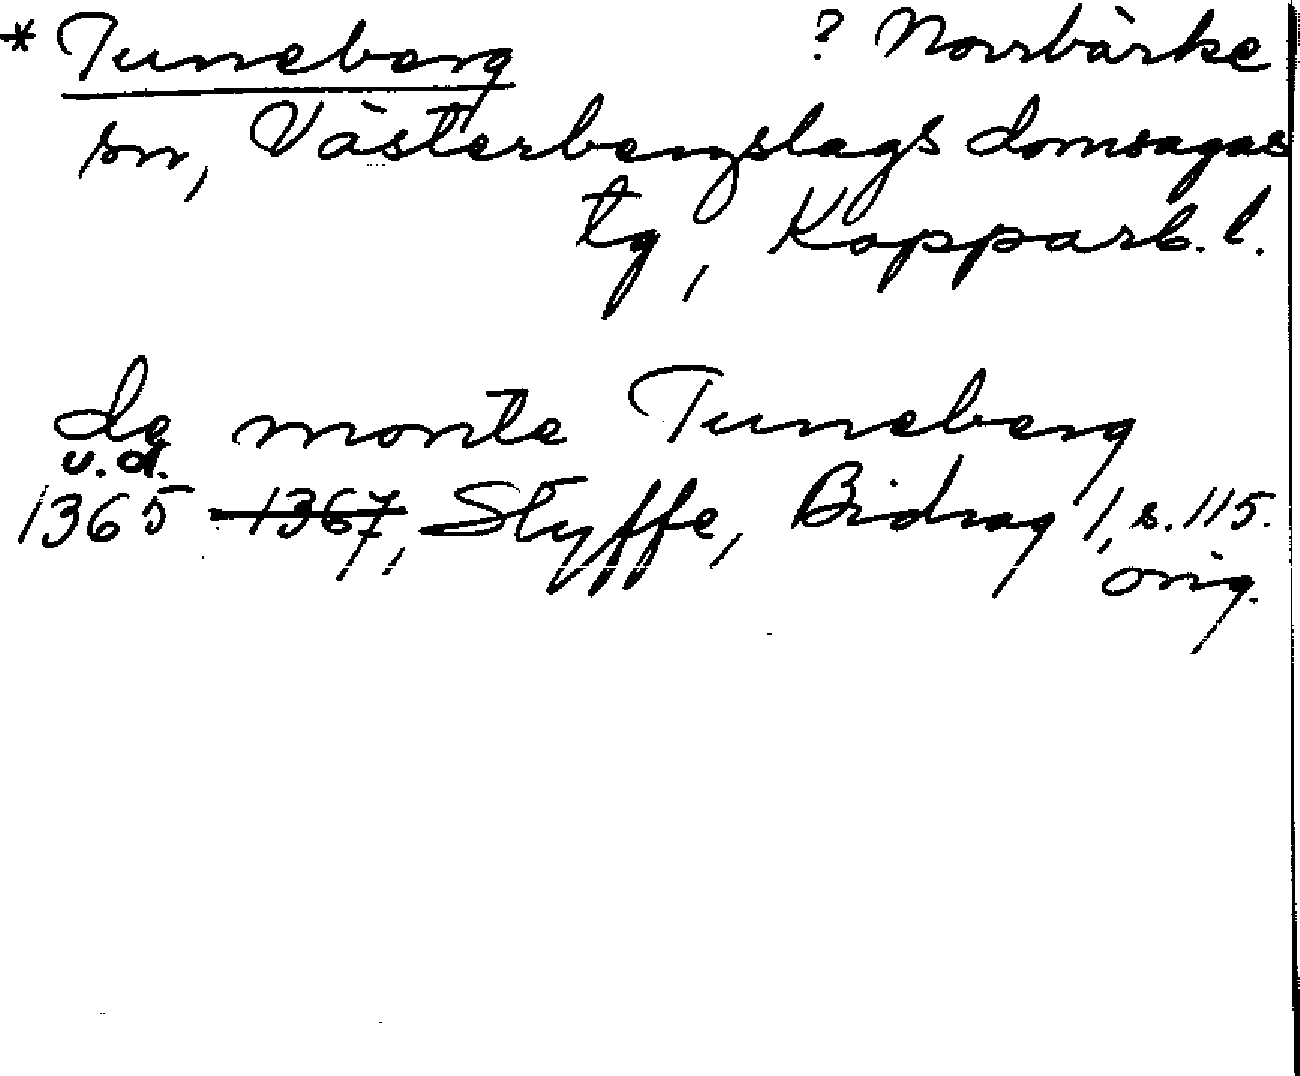 * Tuneberg ? Norrbärke
sn, Västerbergslags domsagas
tg, Kopparb. l.
de monte Tuneberg
u.d.
1365 1367, Styffe, Bidrag 1, s. 115.
orig.